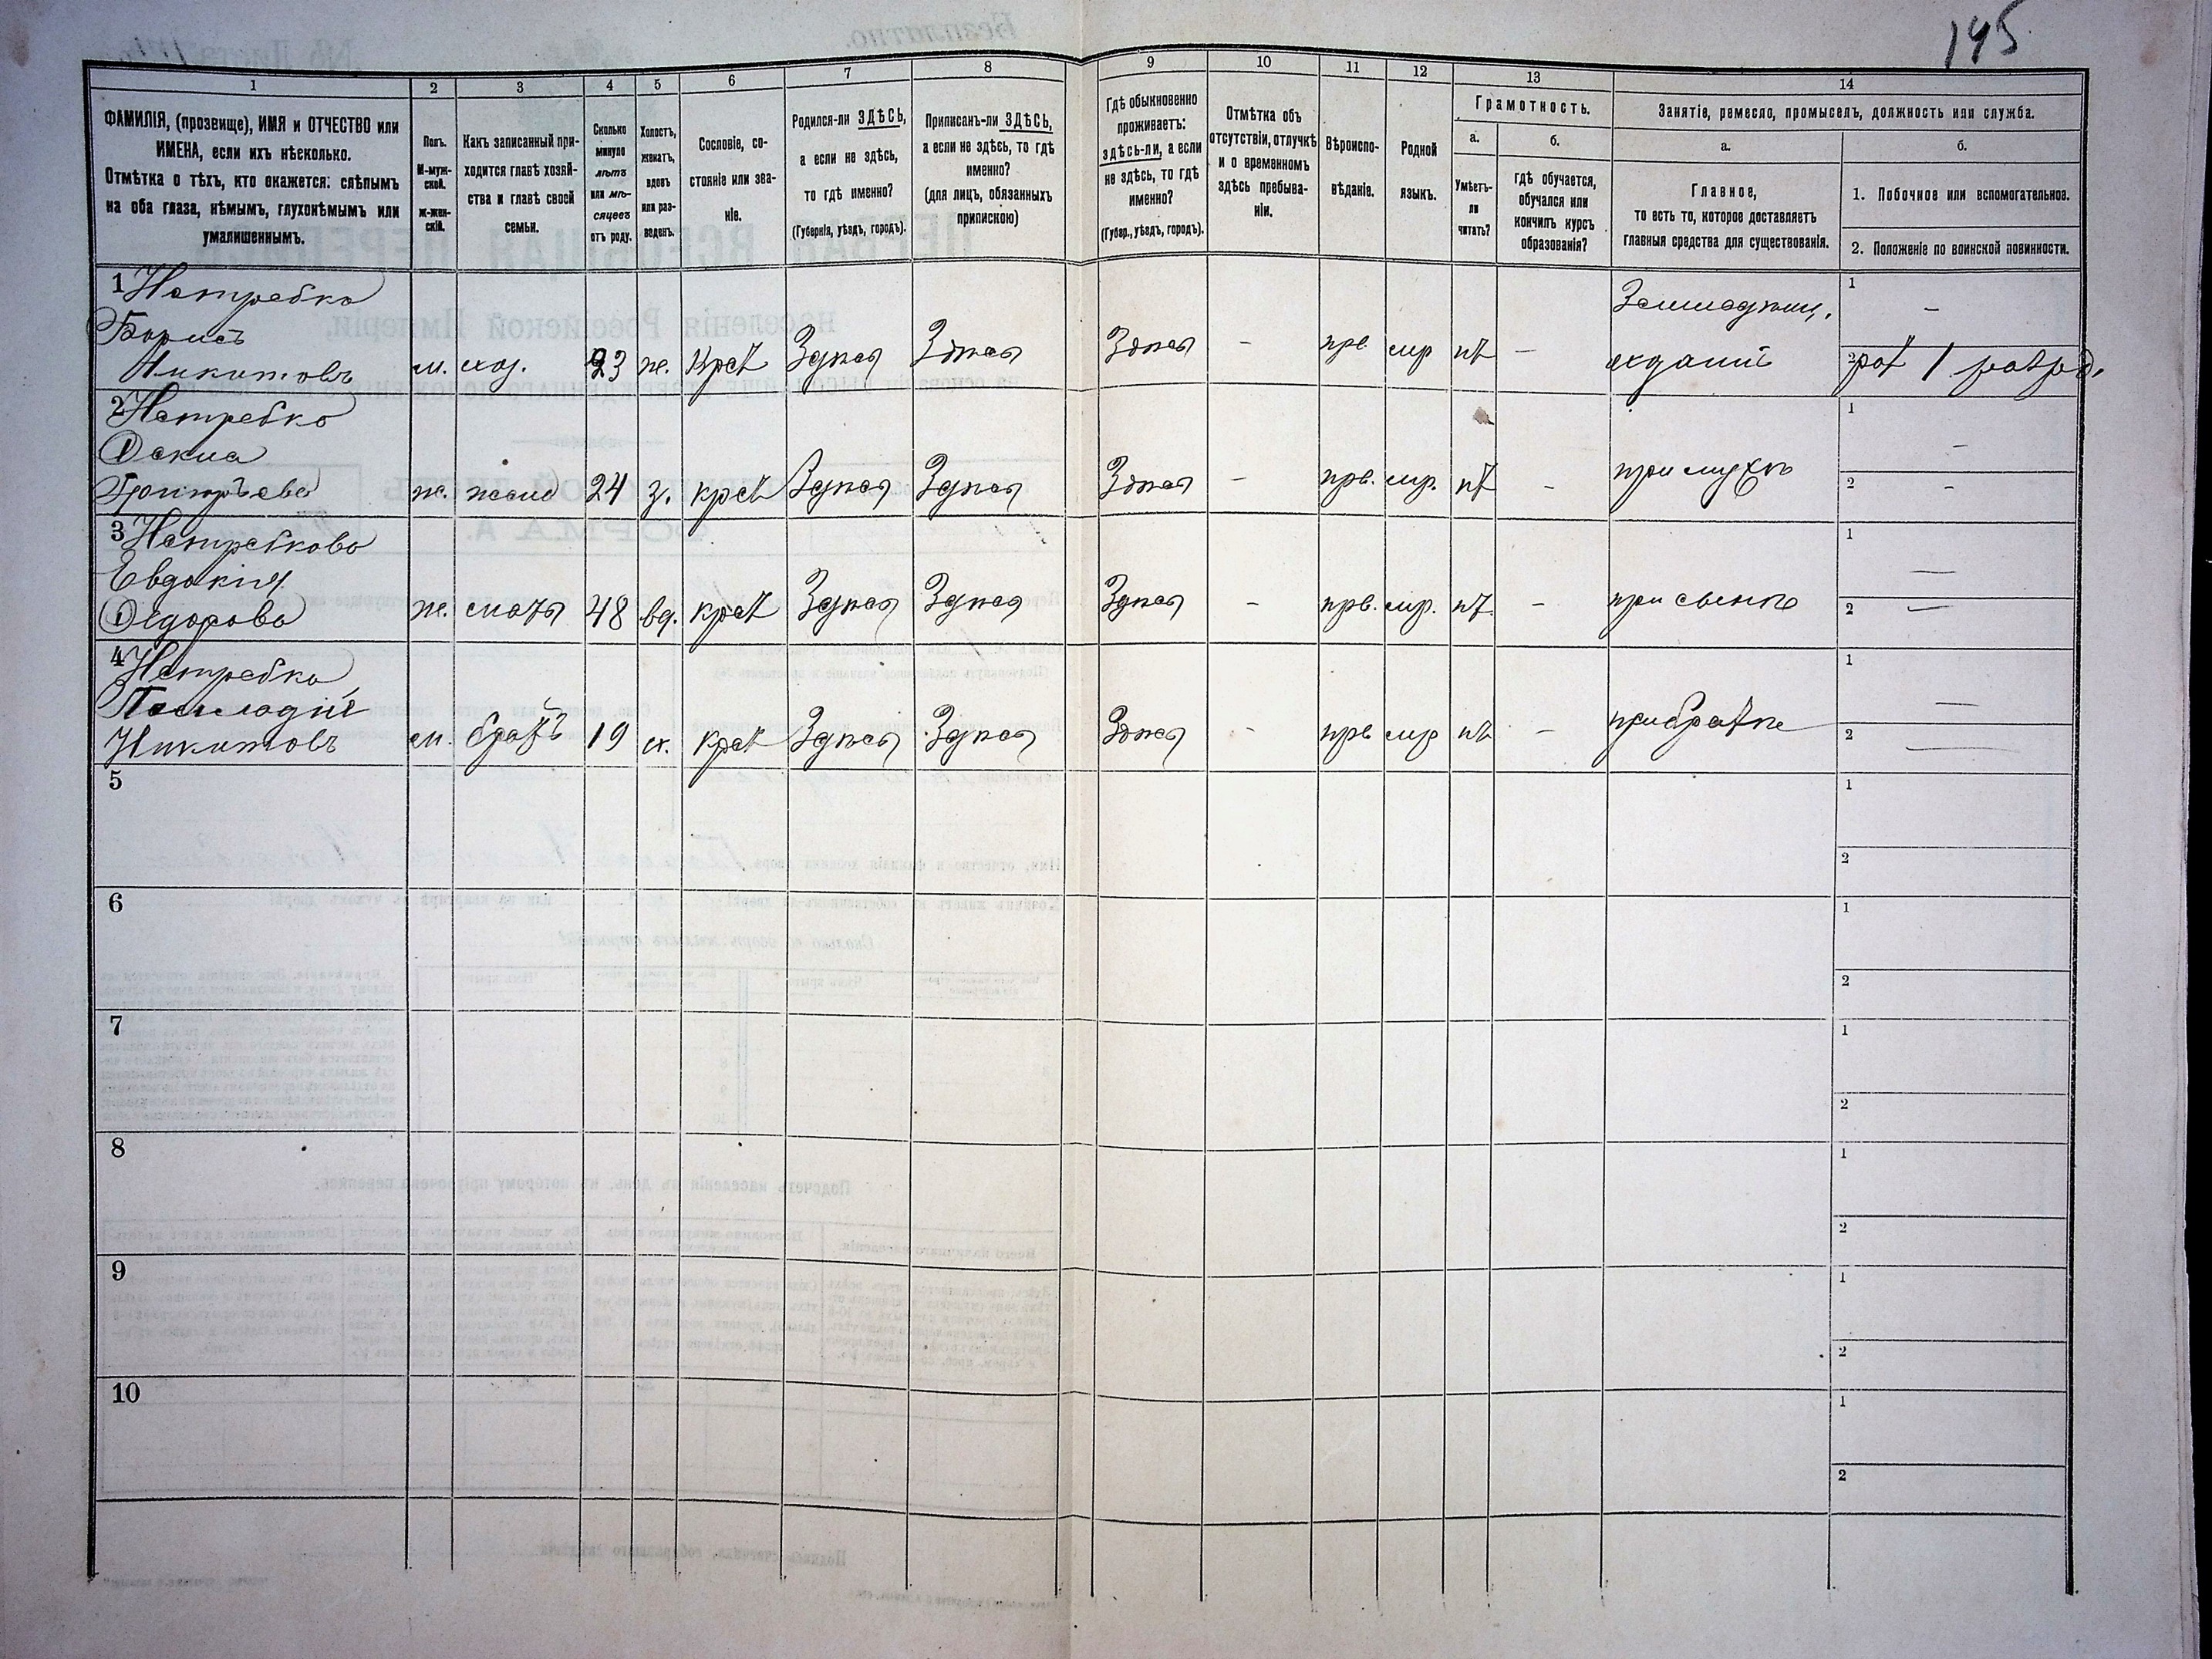 145
1 2 3 4 5 6 7 8 9 10 11 12 13 14
ФАМИЛІЯ, (прозвище), ИМЯ и ОТЧЕСТВО или
ИМЕНА, если ихъ нѣсколько.
Отмѣтка о тѣхъ, кто окажется: слѣпымъ
на оба глаза, нѣмымъ, глухонѣмымъ или
умалишеннымъ.
Полъ.
М-муж-
ской.
Ж-жен-
скій.
Какъ записанный при-
ходится главѣ хозяй-
ства и главѣ своей
семьи.
Сколько
минуло
лѣтъ
или мѣ-
сяцевъ
отъ роду.
Холостъ,
женатъ,
вдовъ
или раз-
веденъ.
Сословіе, со-
стояніе или зва-
ніе.
Родился-ли ЗДѢСЬ,
а если не здѣсь,
то гдѣ именно?
(Губернія, уѣздъ, городъ).
Приписанъ-ли ЗДѢСЬ,
а если не здѣсь, то гдѣ
именно?
(для лицъ, обязанныхъ
припискою)
Гдѣ обыкновенно
проживаетъ:
здѣсь-ли, а если
не здѣсь, то гдѣ
именно?
(Губер., уѣздъ, городъ).
Отмѣтка объ
отсутствіи, отлучкѣ
и о временномъ
здѣсь пребыва-
ніи.
Вѣроиспо-
вѣданіе.
Родной
языкъ.
Грамотность.
а.
Умѣетъ-
ли
читать?
б.
гдѣ обучается,
обучался или
кончилъ курсъ
образованія?
Занятіе, ремесло, промыселъ, должность или служба.
а.
Главное,
то есть то, которое доставляетъ
главныя средства для существованія.
б.
1. Побочное или вспомогательное.
2. Положеніе по воинской повинности.
1 Нетребко
Борисъ
Никитовъ м. хоз. 23 ж. Крст Здѣсь Здѣсь Здѣсь - прв. мр нт -
1 -
2 рат 1 разряд.
2 Нетребко
Григорьева ж. жена 24 з. крст Здѣсь Здѣсь Здѣсь - прв. мр. нт - при мужѣ
1 -
2 -
3 Нетребкова
Евдокія
Ѳедорова ж. мать 48 вд. крст Здѣсь Здѣсь Здѣсь - прв. мр. нт - при сынѣ
1 -
2 -
4 Нетребко
Никитовъ м. братъ 19 х. крст Здѣсь Здѣсь Здѣсь - прв мр нт - при братѣ
1 -
2 -
5 1
2
6 1
2
7 1
2
8 1
2
9 1
2
10 1
2